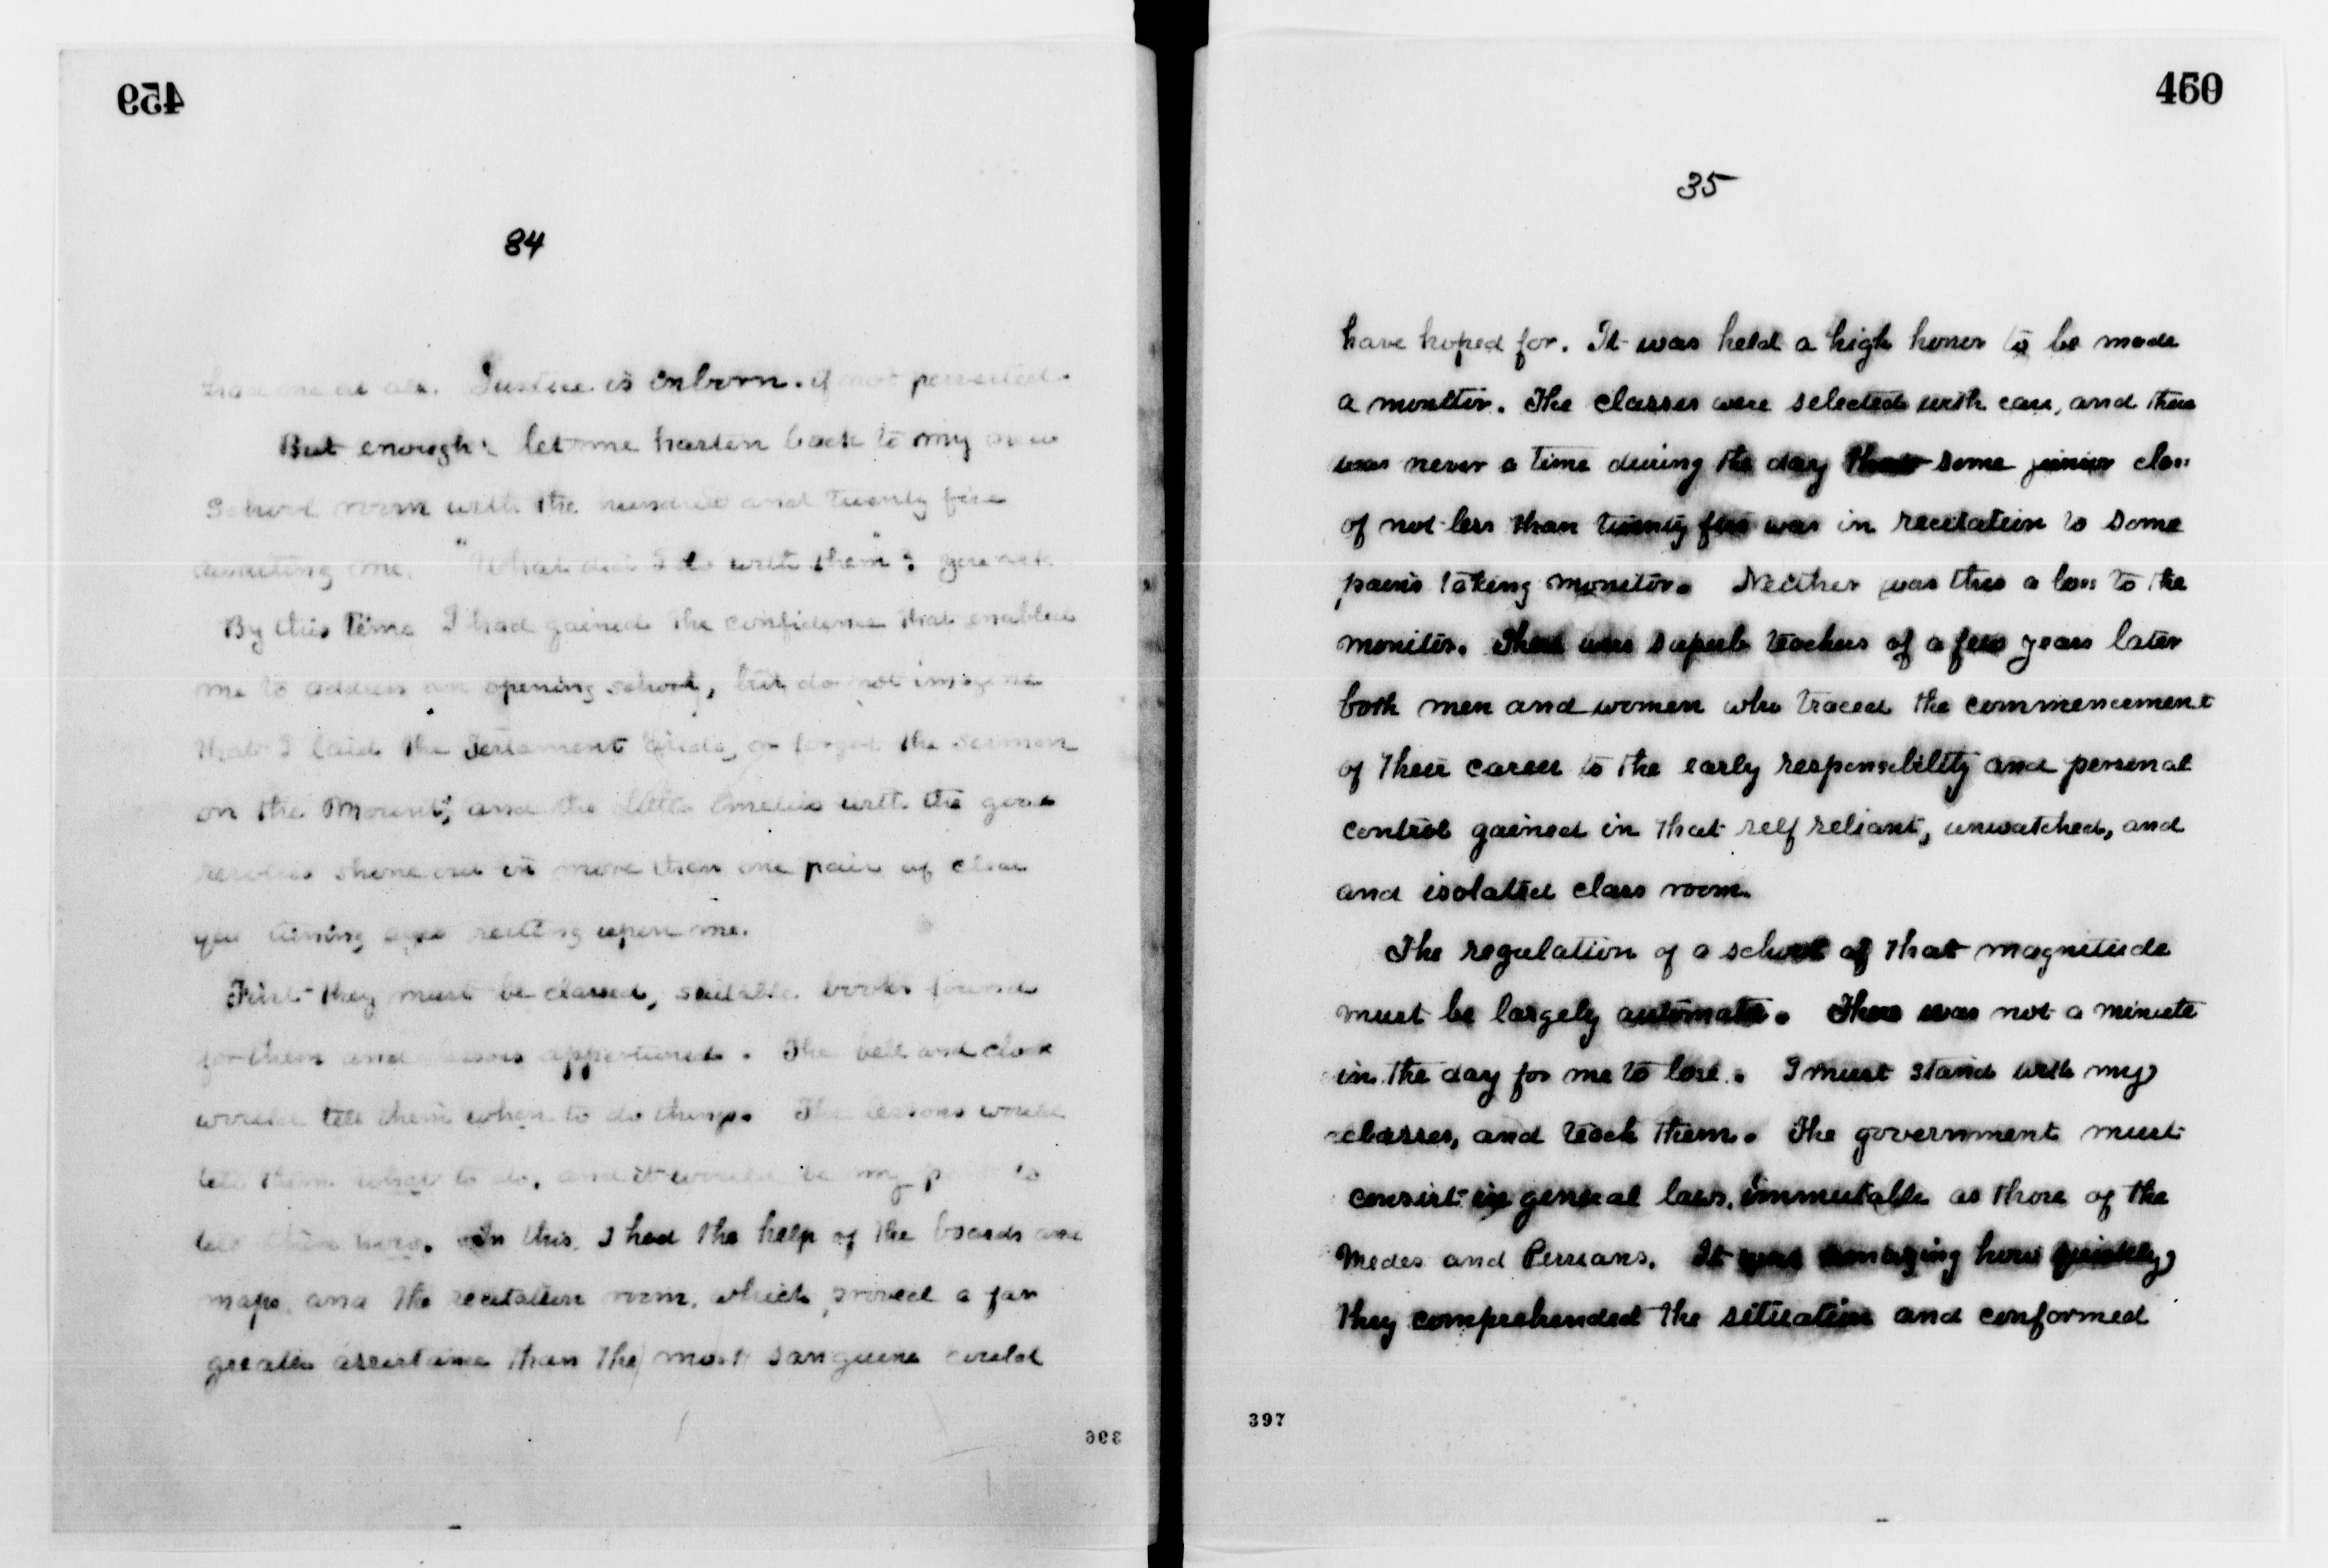 459
84
had one at all. Justice is inborn. if not perverted.
But enough: let me hasten back to my new
School room with the hundred and twenty five
awaiting me. "What did I do with them"? you ask
By this time I had gained the confidence that enabled
me to address an opening school, but do not imagine
that I laid the Testament aside, or forgot the Sermon
on the Mount; and the little with the good
resolves shone out in more than one pair of clear
eyes resting upon me.
First they must be classed, suitable books found
for them and lessons apportioned. The bell and clock
would tell them when to do things. The lessons would
tell them what to do, and it would be my to
tell them how. In this, I had the help of the boards and
maps, and the recitation room, which proved a far
greater assistance than the most sanguine could
396
460
35
have hoped for. It was held a high honor to be made
a monitor. The classes were selected with care, and there
was never a time during the day that some junior class
of not less than twenty five was in recitation to some
pains taking monitor. Neither was this a loss to the
monitor. There were superb teachers of a few years later
both men and women who traced the commencement
of their career to the early responsibility and personal
control gained in that self reliant, unwatched, and
and isolated class room.
The regulation of a school of that magnitude
must be largely automatic. There was not a minute
in the day for me to lose. I must stand with my
classes, and teach them. The government must
consist in general laws, immutable as those of the
Medes and Persians. It was amazing how quickly
they comprehended the situation and conformed
397